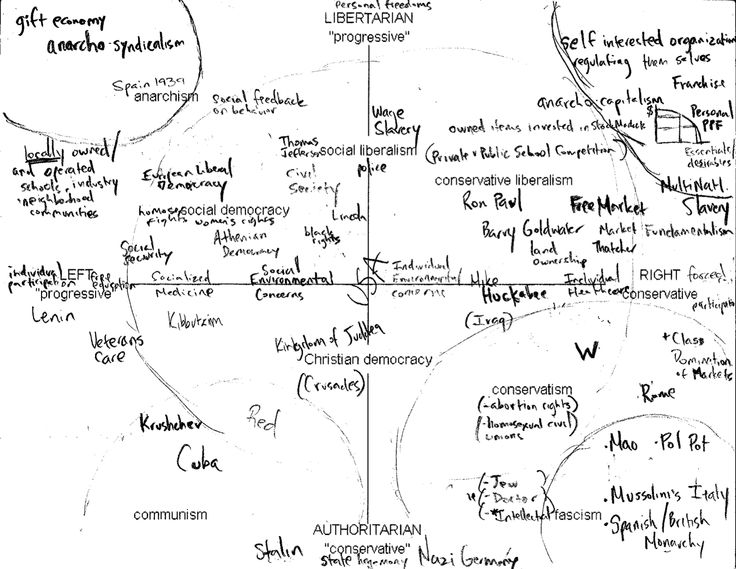 personal freedoms
LIBERTARIAN
"progressive"
gift economy
anarcho-syndicalism
Spain 1939
anarchism
social feedback
on behavior
Wage
Slavery
self interested organizations
regulating them selves
Franchise
anarcho-capitalism
Personal
PPF
Essentials/
desirables
owned items invested in Stock Markets
(Private v Public School Competition)
locally owned/
and operated
schools, industry
neighborhood
communities
European Liberal
Democracy
Thomas
Jefferson
social liberalism
police
Civil
Society
conservative liberalism
Multi Natl.
Slavery
homosex
rights
social democracy
women's rights
Lincoln
black
rights
Ron Paul
Free Market
Barry Goldwater
Market
Thatcher
Fundamentalism
land
ownership
Athenian
Democracy
Social
Security
individual
participation
LEFT
"progressive"
free
education
Socialized
Medicine
Social Environmental
Concerns
Individual
Environmental
concerns
Mike
Huckabee
(Iraq)
Individual
Healthcare
RIGHT
conservative
forces!
participation
Lenin
Kibbutzim
Veterans
Care
Kingdom of Juddea
Christian democracy
(Crusades)
W
+ Class
Domination
of Markets
Rome
conservatism
(-abortion rights)
(-homosexual civil
unions
Krushchev
Red
Cuba
• Mao • Pol Pot
(-Jew
-Doctor
-*Intellectual
fascism
• Mussolini's Italy
• Spanish/British
Monarchy
communism
AUTHORITARIAN
"conservative"
state hegemony
Stalin
Nazi Germany